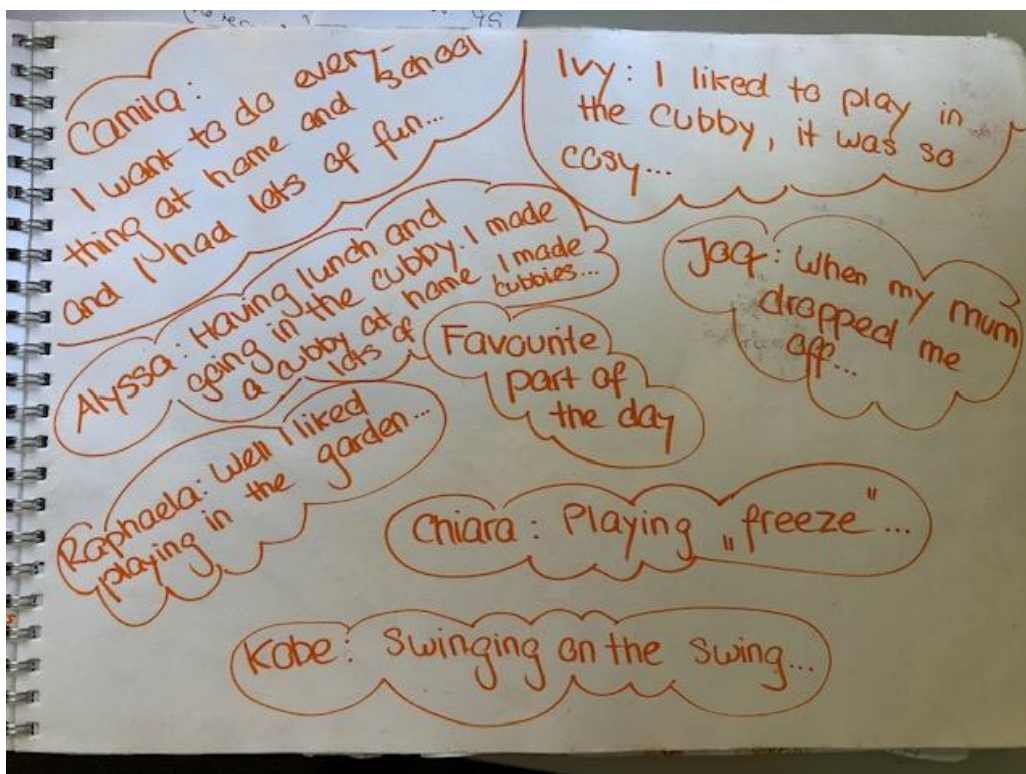 Camila:
I want to do every-
thing at home and school
and I had lots of fun...
Ivy: I liked to play in
the cubby, it was so
cosy...
Alyssa: Having lunch and
going in the cubby. I made
a cubby at home I made
lots of cubbies...
Jaq: When my mum
dropped me
off...
Favourite
part of
the day
Raphaela: Well I liked
playing in the garden...
Chiara: Playing „freeze"...
Kobe: Swinging on the swing...